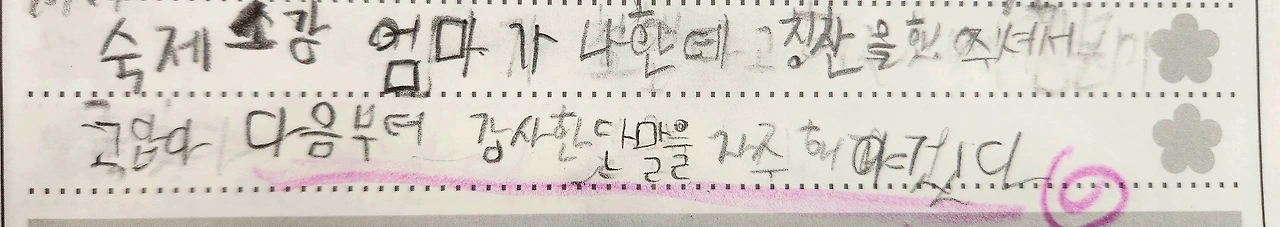 숙제 소감 엄마가 나한테 칭찬을 해 주셔서
고맙다 다음부터 감사한단 말을 자주 해야겠다